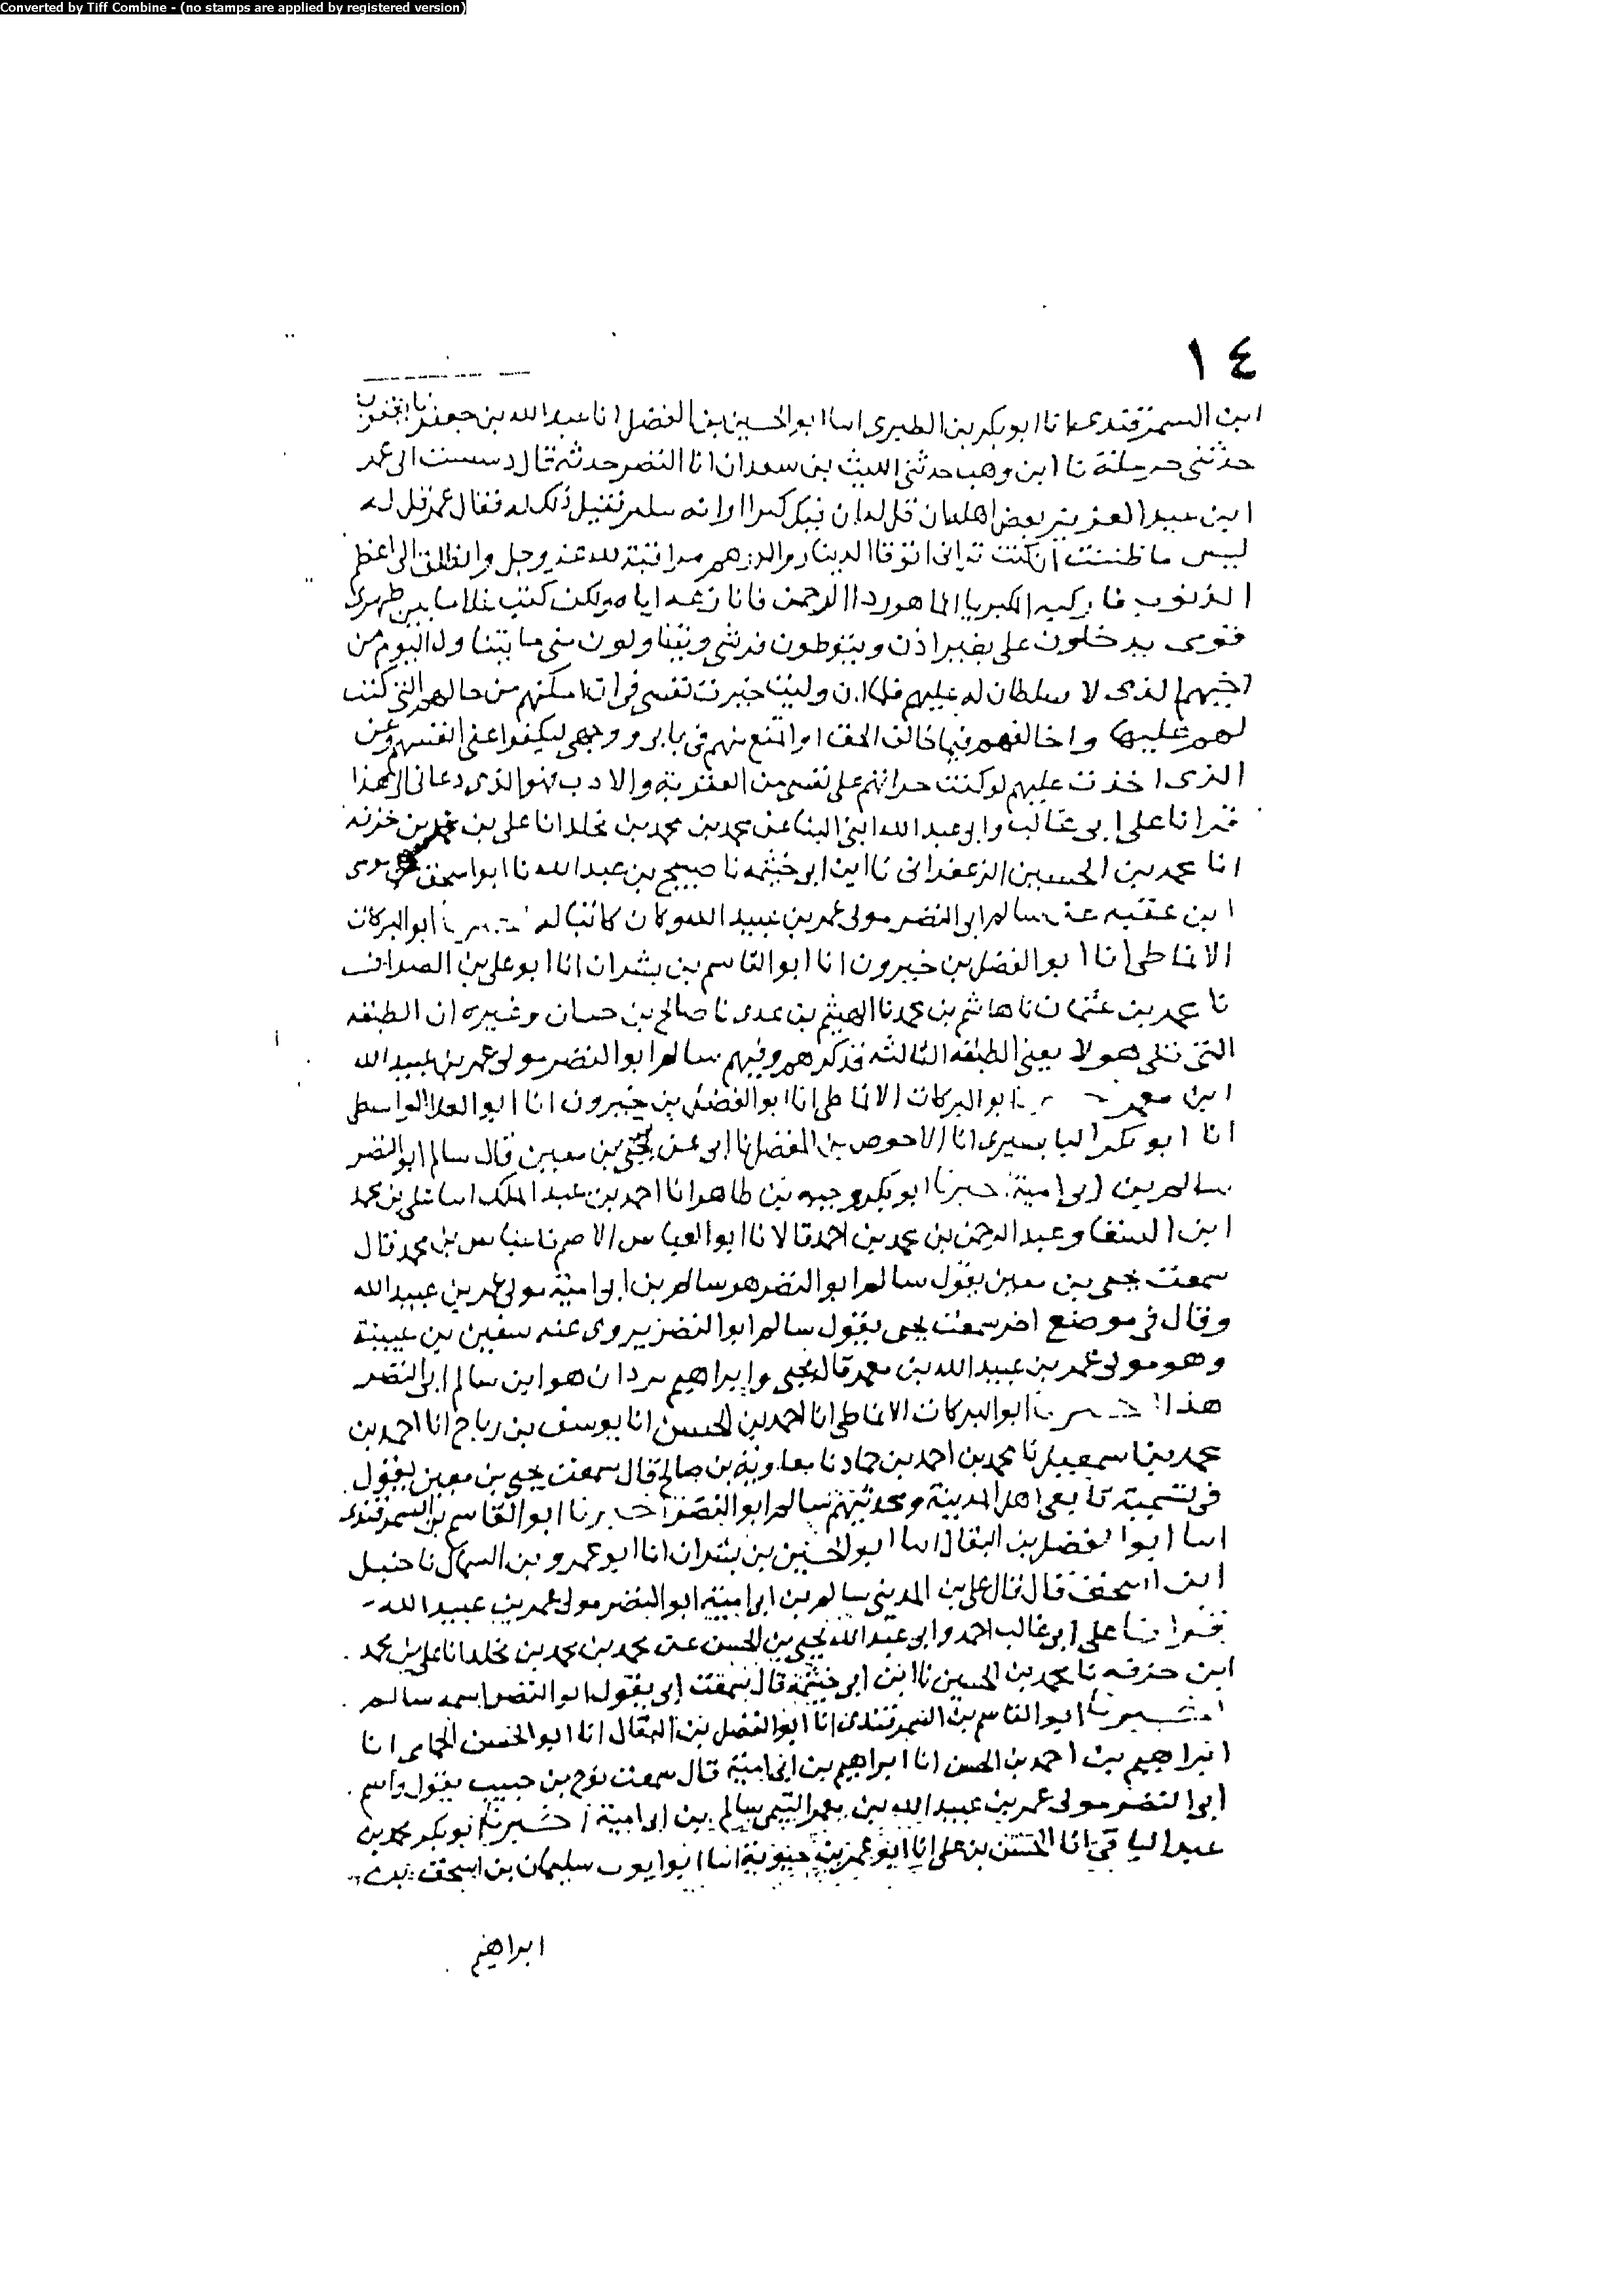 Converted by Tiff Combine - (no stamps are applied by registered version)
١٤
ابن السمرقندى انا ابو بكر بن الطبرى اسا ابو الحسين بن الفضل انا عبد الله بن جعفر نا يعقوب
حدثنى حرملة نا ابن وهب حدثنى الليث بن سعد ان ابا النضر حدثه قال دسست الى عمر
ابن عبد العزيز بعض اهله ان قل له ان فيك كبرا او انه فقيل ذلك له فقال عمر قل له
ليس ما ظننت ان كنت ترانى اتوقا الدينار والدرهم مراقبة لله عز وجل وانطلق الى اعظم
الذنوب فاركبه الكبريا انما هو ردا الرحمن فانازعه اياه ولكن كنت غلاما بين ظهرى
قومى يدخلون على بغير اذن ويتوطون فرشى ويتناولون منى ما يتناول القوم من
اخيهم الذى لا سلطان له عليهم فلما ان وليت خيرت نفسى فى ان امكنهم من حالهم التى كنت
لهم عليها واخالفهم فيما خالف الحق او اتمنع منهم فى بابى ووجهى ليكفوا عنى انفسهم وعن
الذى اخذت عليهم لو كنت جراتهم على نفسى من العقوبة والادب فهو الذى دعانى الى هذا
قرانا على ابى غالب وابى عبد الله ابنى البنا عن محمد بن محمد بن مخلد انا على بن محمد بن خزفه
انا محمد بن الحسين الزعفرانى نا ابن ابى خيثمه نا صبيح بن عبد الله نا ابو اسحق عن موسى
ابن عقبه عن سالم ابى النضر مولى عمر بن عبيد الله وكان كاتبا له اخبرنا ابو البركات
الانماطى انا ابو الفضل بن خيرون انا ابو القاسم بن بشران انا ابو على بن الصواف
نا محمد بن عثمان نا هاشم بن محمد نا الهيثم بن عدى نا صالح بن حسان وغيره ان الطبقه
التى تلى هولا يعنى الطبقه الثالثه فذكرهم وفيهم سالم ابو النضر مولى عمر بن عبيد الله
ابن معمر اخبرنا ابو البركات الانماطى انا ابو الفضل بن خيرون انا ابو العلا الواسطى
انا ابو بكر البابسيرى انا الاحوص بن المفضل نا ابى عن يحيى بن معين قال سالم ابو النضر
سالم بن ابى امية اخبرنا ابو بكر وجيه بن طاهر انا احمد بن عبد الملك اسا على بن محمد
ابن السقا وعبد الرحمن بن محمد بن احمد قالا نا ابو العباس الاصم نا عباس بن محمد قال
سمعت يحيى بن معين يقول سالم ابو النضر هو سالم بن ابى امية مولى عمر بن عبيد الله
وقال فى موضع اخر سمعت يحيى يقول سالم ابو النضر يروى عنه سفين بن عيينة
وهو مولى عمر بن عبيد الله بن معمر قال يحيى وابراهيم بردان هو ابن سالم ابى النضر
هذا اخبرنا ابو البركات الانماطى انا احمد بن الحسن انا يوسف بن رباح انا احمد بن
محمد بن اسمعيل نا محمد بن احمد بن حماد نا معاوية بن صالح قال سمعت يحيى بن معين يقول
فى تسمية تابعى اهل المدينة ومحدثيهم سالم ابو النضر اخبرنا ابو القاسم بن السمرقندى
اسا ابو الفضل بن البقال اسا ابو الحسين بن بشران انا ابو عمرو بن السماك نا حنبل
ابن اسحق قال قال على بن المدينى سالم بن ابى امية ابو النضر مولى عمر بن عبيد الله
قرانا على ابى غالب احمد وابى عبد الله يحيى بن الحسن عن محمد بن محمد بن مخلد انا على بن محمد
ابن خزفه نا محمد بن الحسين نا ابن ابى خيثمة قال سمعت ابى يقول ابو النضر اسمه سالم
اخبرنا ابو القاسم بن السمرقندى انا ابو الفضل بن البقال انا ابو الحسن الحمامى انا
ابراهيم بن احمد بن الحسن انا ابراهيم بن ابى امية قال سمعت نوح بن حبيب يقول واسم
ابى النضر مولى عمر بن عبيد الله بن معمر التيمى سالم بن ابى امية اخبرنا ابو بكر محمد بن
عبد الباقى انا الحسن بن على انا ابو عمر بن حيوية انا ابو ايوب سليمان بن اسحق بن
ابراهيم